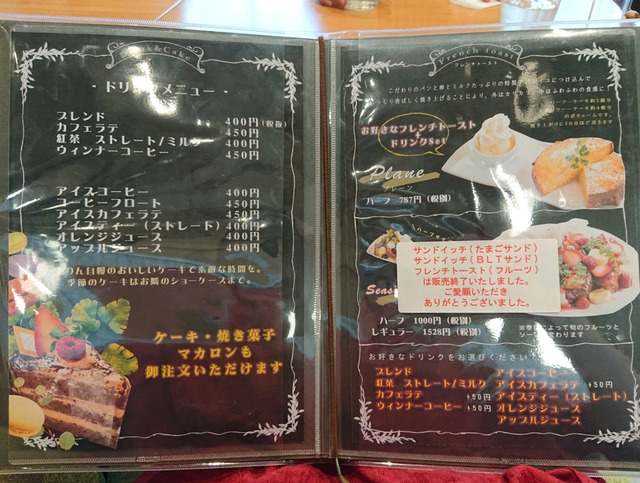 &Cake
- ドリンクメニュー -
ブレンド 400円(税抜)
カフェラテ 450円
紅茶 ストレート/ミルク 400円
ウィンナーコーヒー 450円
アイスコーヒー 400円
コーヒーフロート 450円
アイスカフェラテ 450円
アイスティー(ストレート) 400円
オレンジジュース 400円
アップルジュース 400円
自慢のおいしいケーキで素敵な時間を。
季節のケーキはお隣のショーケースまで。
ケーキ・焼き菓子
マカロンも
御注文いただけます
French toast
フレンチトースト
こだわりのパンと卵とミルクたっぷりの特製
につけ込んで
香ばしく焼き上げることにより、外はカリ
はふわふわの食感に
お好きなフレンチトースト
ドリンクSet
Plane
プレーン
ハーフ 787円(税別)
サンドイッチ(たまごサンド)
サンドイッチ(BLTサンド)
フレンチトースト(フルーツ)
は販売終了いたしました。
ご愛顧いただき
ありがとうございました。
ハーフ 1000円(税別)
レギュラー 1528円(税別)
※季節によって旬のフルーツと
ソースが変わります
お好きなドリンクをお選びください
ブレンド アイスコーヒー
紅茶 ストレート/ミルク アイスカフェラテ +50円
カフェラテ +50円 アイスティー(ストレート)
ウィンナーコーヒー +50円 オレンジジュース
アップルジュース